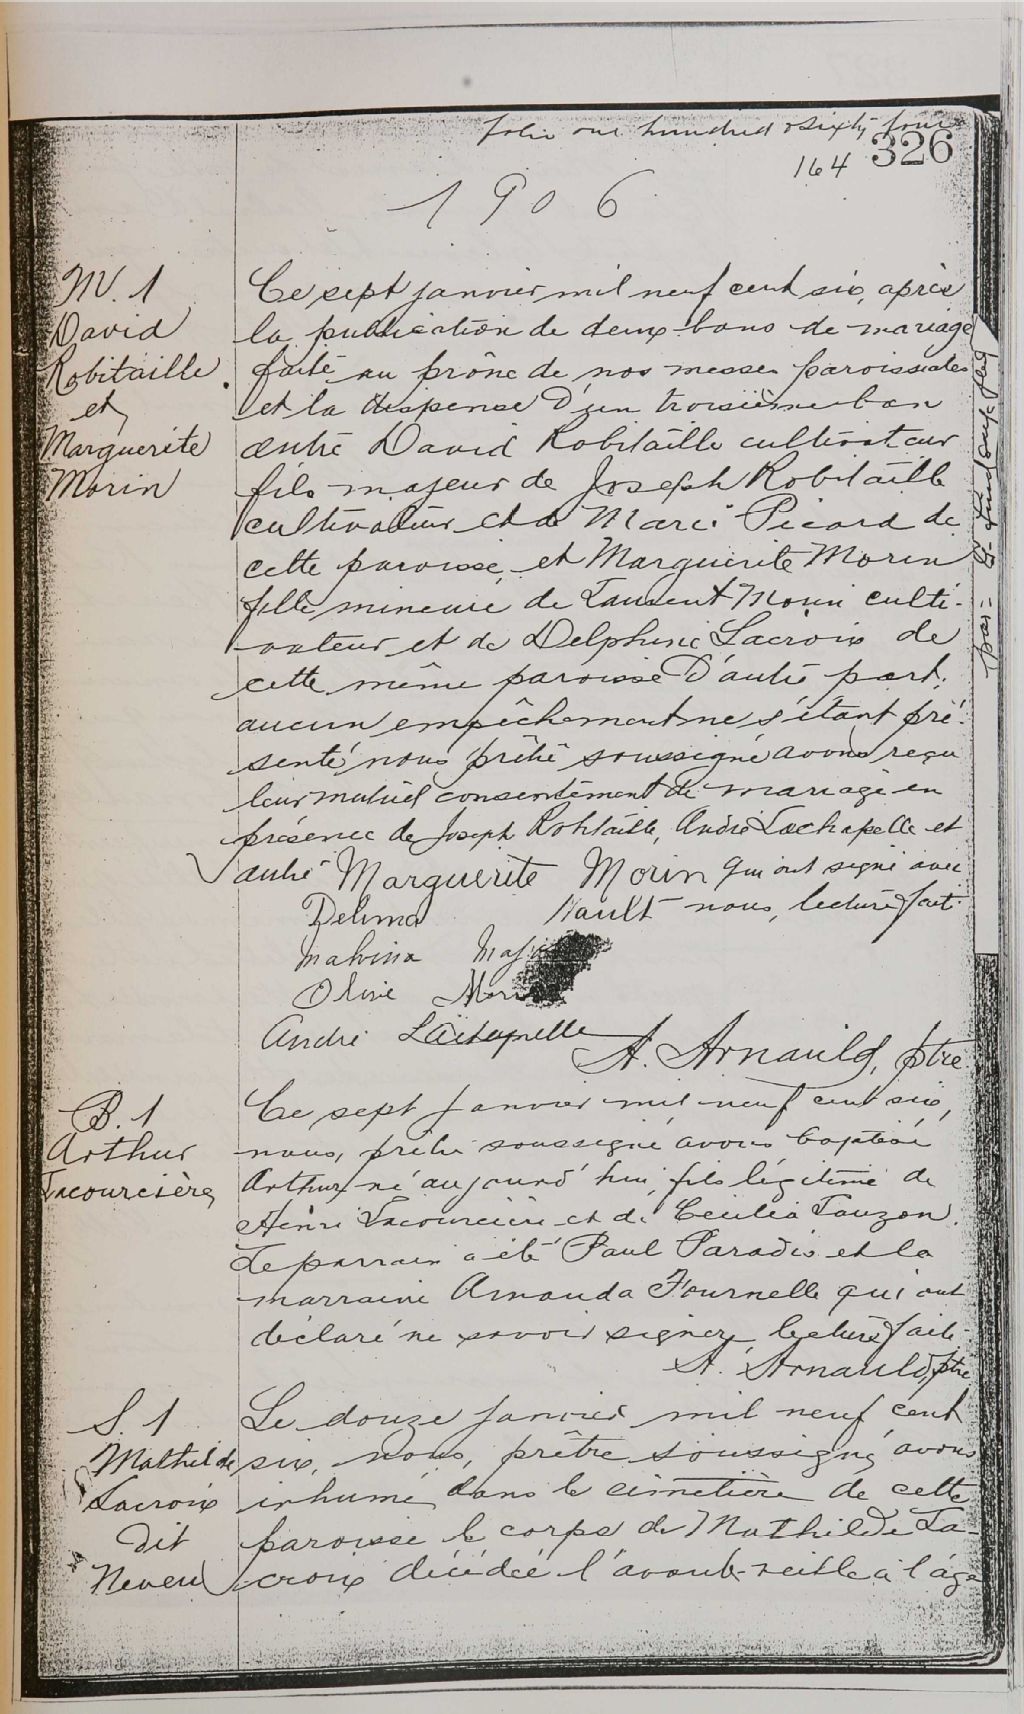 folio one hundred & sixty four
164 326
1906
M. 1
David
Robitaille
et
Marguerite
Morin
Ce sept janvier mil neuf cent six, après
la publication de deux bans de mariage
faite au prône de nos messes paroissiales
et la dispense d'un troisième ban
entre David Robitaille cultivateur
fils majeur de Joseph Robitaille
cultivateur et de Marie Picard de
cette paroisse, et Marguerite Morin
fille mineure de Laurent Morin culti-
vateur et de Delphine Lacroix de
cette même paroisse d'autre part,
aucun empêchement ne s'étant pré-
senté, nous prêtre soussigné avons reçu
leur mutuel consentement de mariage en
présence de Joseph Robitaille, André Lachapelle et
autre Marguerite Morin qui ont signé avec
Delima Nault nous, lecture faite
Malvina
Olivie
André Lachapelle
A. Arnauld, ptre.
B. 1
Arthur
Lacourcière
Ce sept janvier mil neuf cent six,
nous, prêtre soussigné avons baptisé
Arthur né aujourd'hui, fils légitime de
Henri Lacourcière et de Cecilia Lauzon.
Le parrain a été Paul Paradis et la
marraine Amanda Fournelle qui ont
déclaré ne savoir signer, lecture faite.
A. Arnauld, ptre
S. 1
Mathilde
Lacroix
dit
Neveu
Le douze janvier mil neuf cent
six, nous, prêtre soussigné, avons
inhumé dans le cimetière de cette
paroisse le corps de Mathilde La-
croix décédée l'avant-veille à l'âge